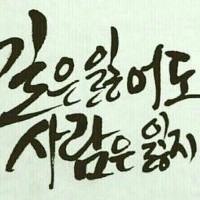 길은 잃어도
사람은 잃지